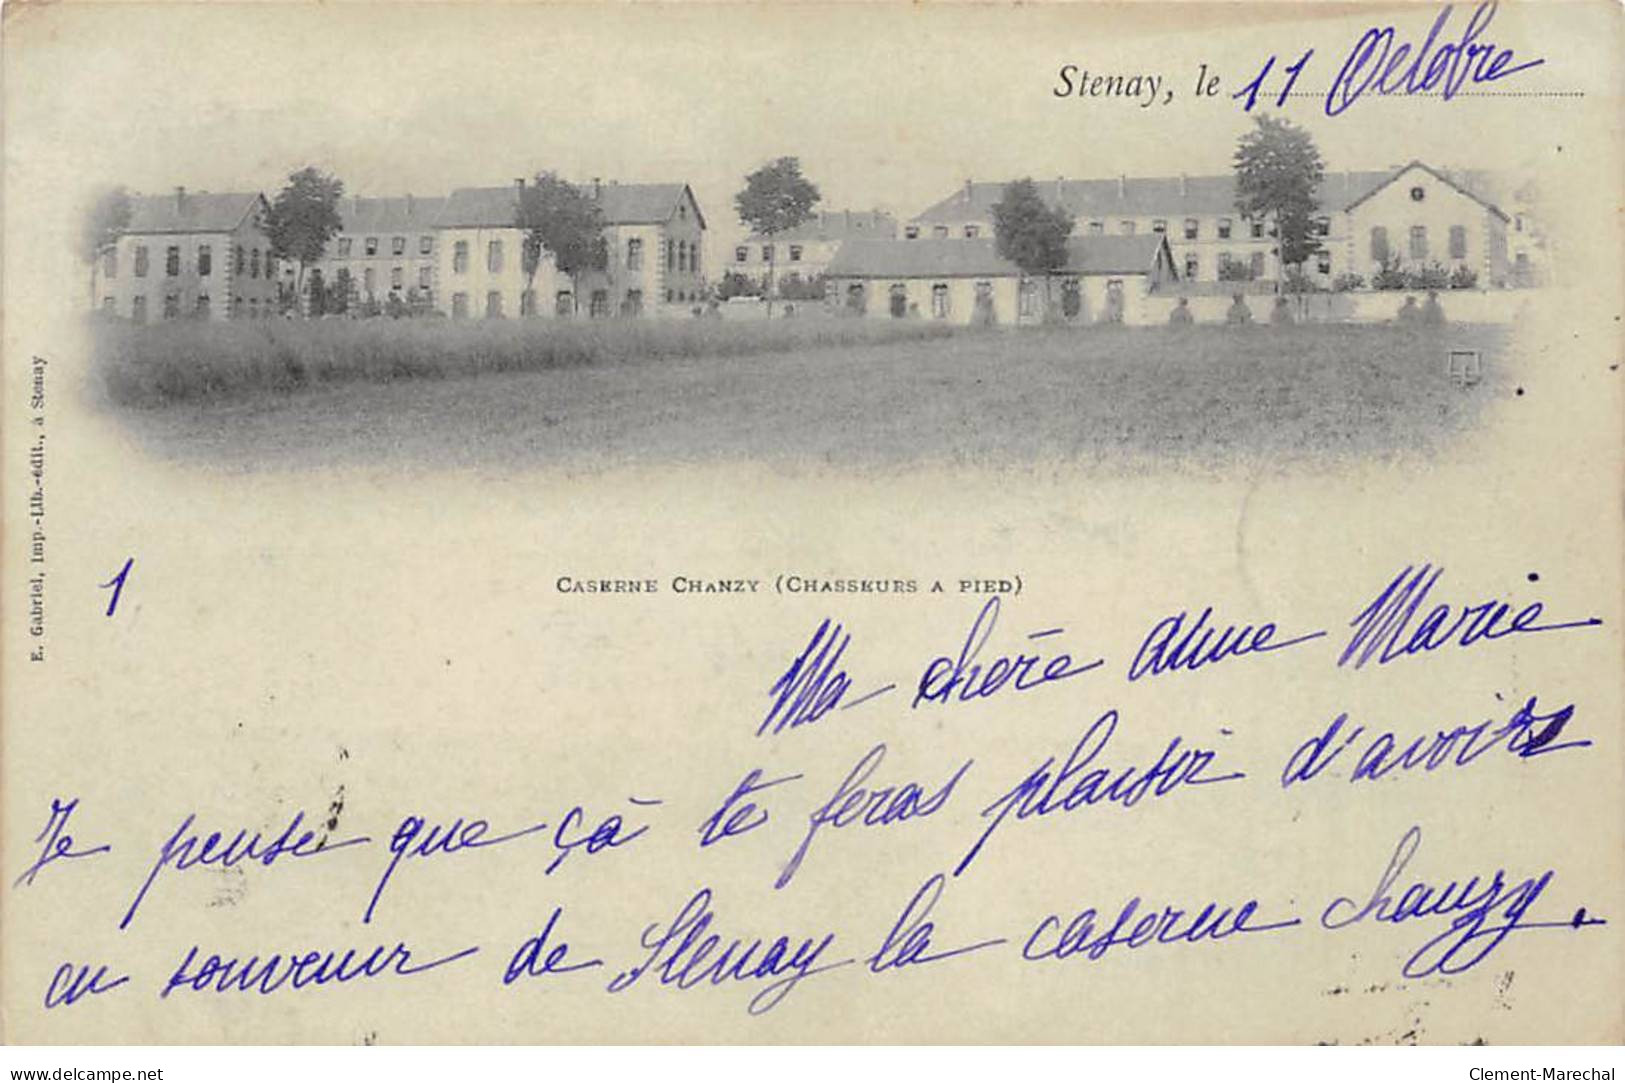 Stenay, le 11 Octobre
E. Gabriel, Imp.-Lib.-édit., à Stenay
1
CASERNE CHANZY (CHASSEURS A PIED)
Ma chère anne Marie
Je pense que çà te feras plaisir d'avoir
en souvenir de Stenay la caserne chanzy.
www.delcampe.net
Clement-Marechal